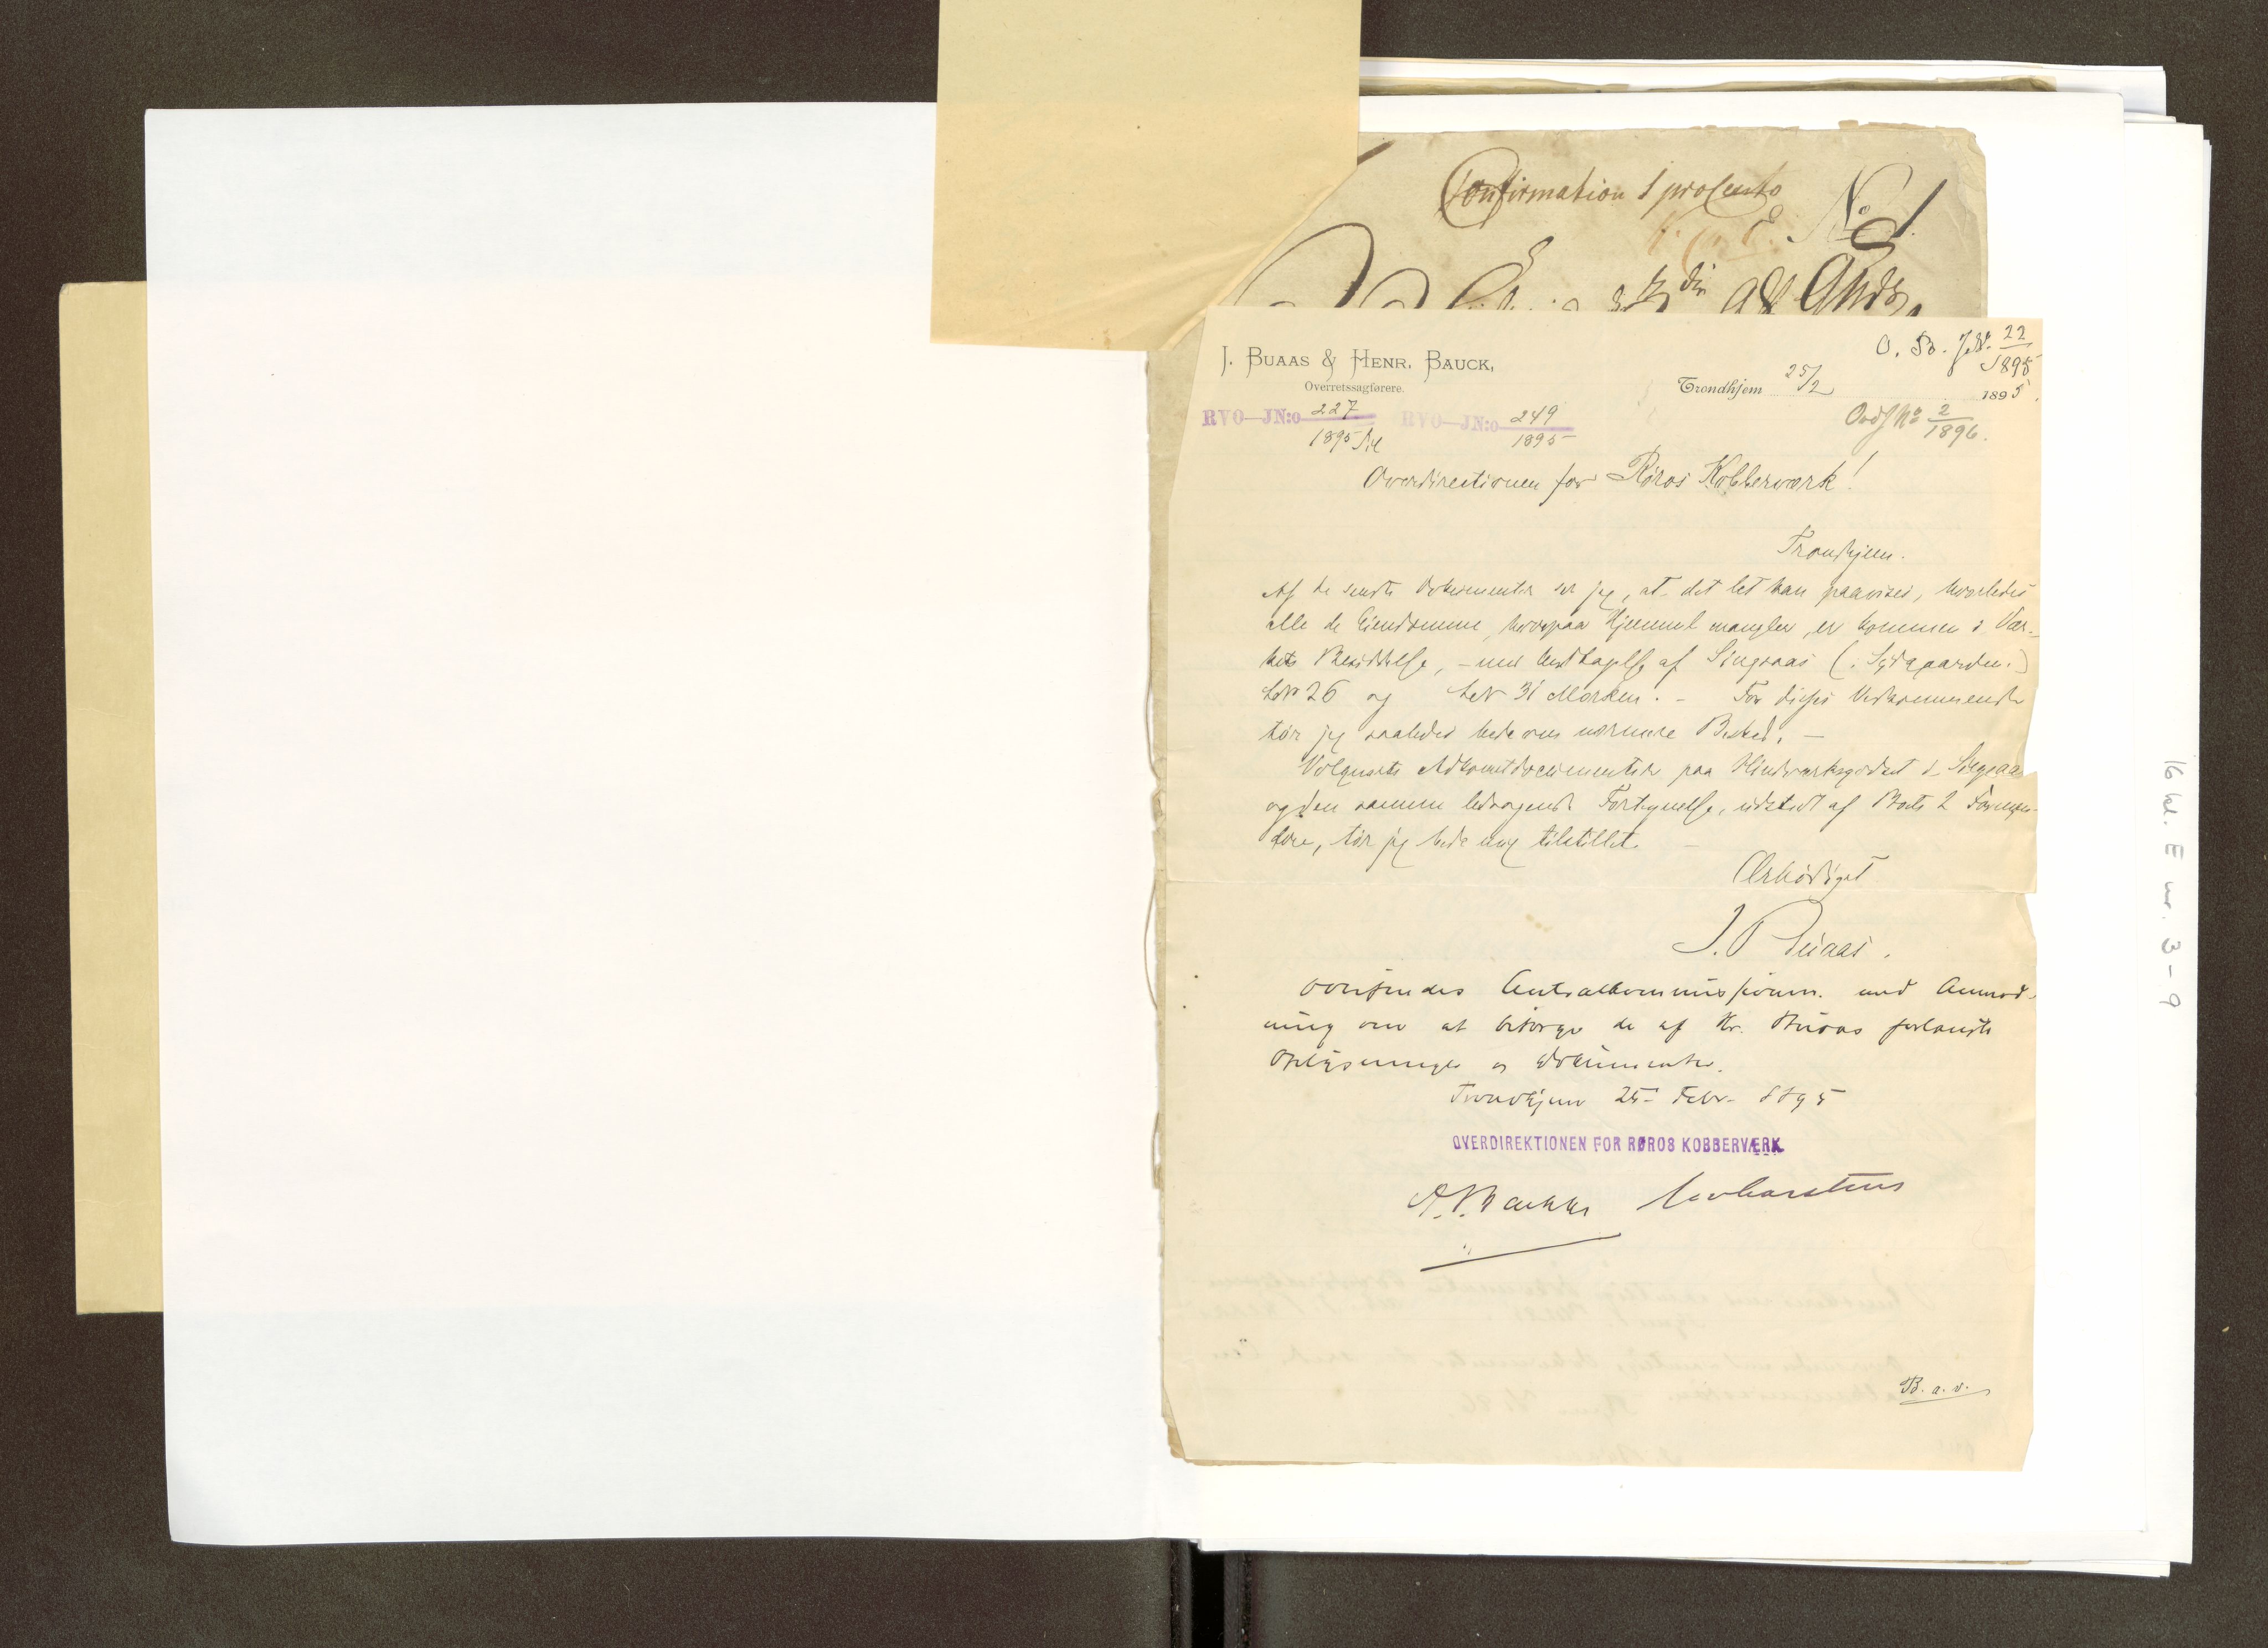 Confirmation 1 procento
No 1.
J. BUAAS & HENR. BAUCK,
Overretssagførere.
O. Br. JN. 22/1895
Trondhjem 25/2 1895.
RVO—JN:o 227/1895 RVO—JN:o 249/1895
No 2/1896.
Overdirectionen for Røros Kobberværk!
Trondhjem.
Af de sendte Dokumenter ser jeg, at det let kan paavises, hvorledes
alle de Eiendomme, hvorpaa Hjemmel mangler, er kommen i Vær-
kets Besiddelse, - med Undtagelse af Singsaas (: Sydgaarden :)
LN 26 og LN 31 Morken. - For disses Vedkommende
tør jeg saaledes bede om nærmere Besked. -
Vølgusets Adkomstdocumenter paa i Singsaas
og den samme ledsagende Fortegnelse, udstedt af 2 Formæn-
dre, tør jeg bede mig tilstillet. -
Ærbødigst
J. Buaas.
Oversendes Centralkommissionen med Anmod-
ning om at besørge de af Hr. Buaas forlangte
Oplysninger og Dokumenter.
Trondhjem 25 Febr. 1895
OVERDIREKTIONEN FOR RØROS KOBBERVÆRK
B. a. v.
16 kl. E nr. 3-9